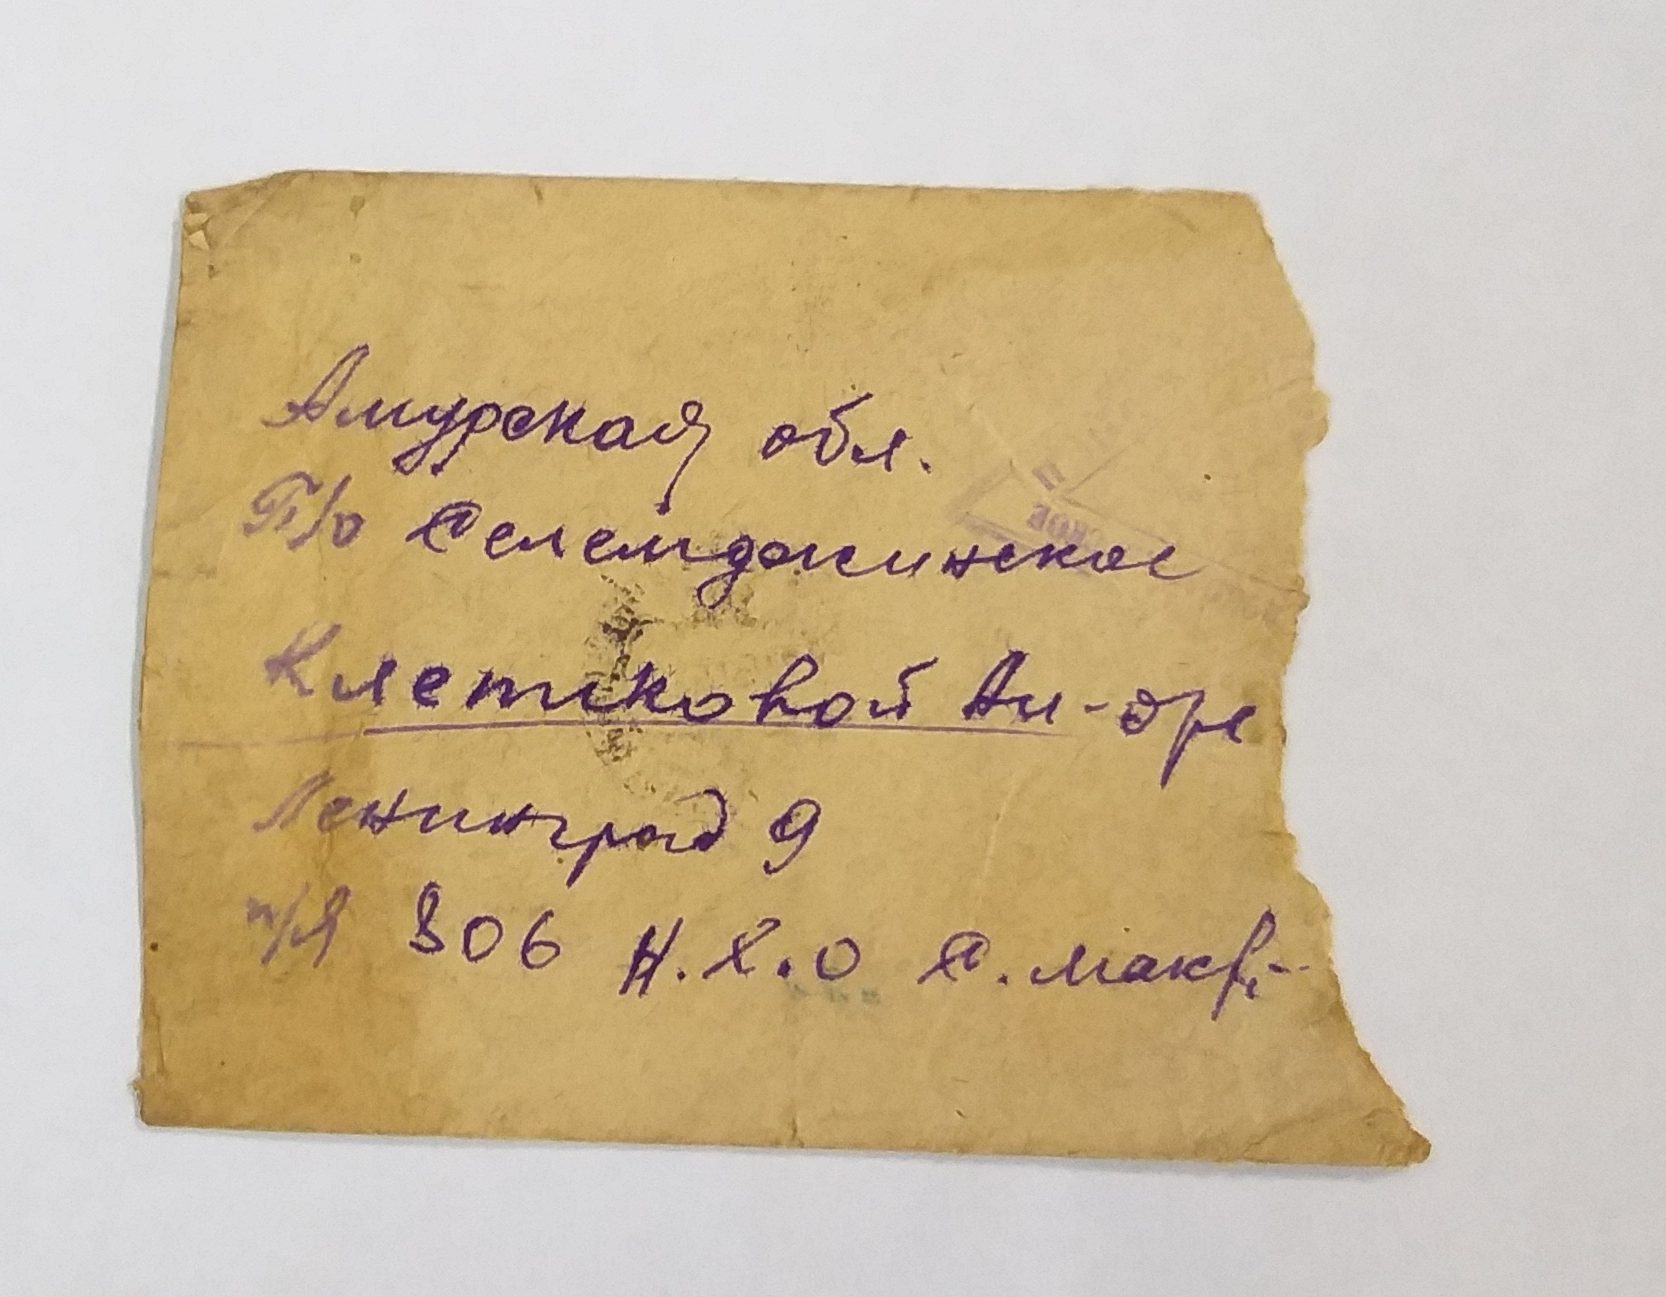 Амурская обл.
П/о Селемджинское
Клетиковой Ан-
Ленинград 9
п/я 306 Н.Х.О С.
СКОЕ